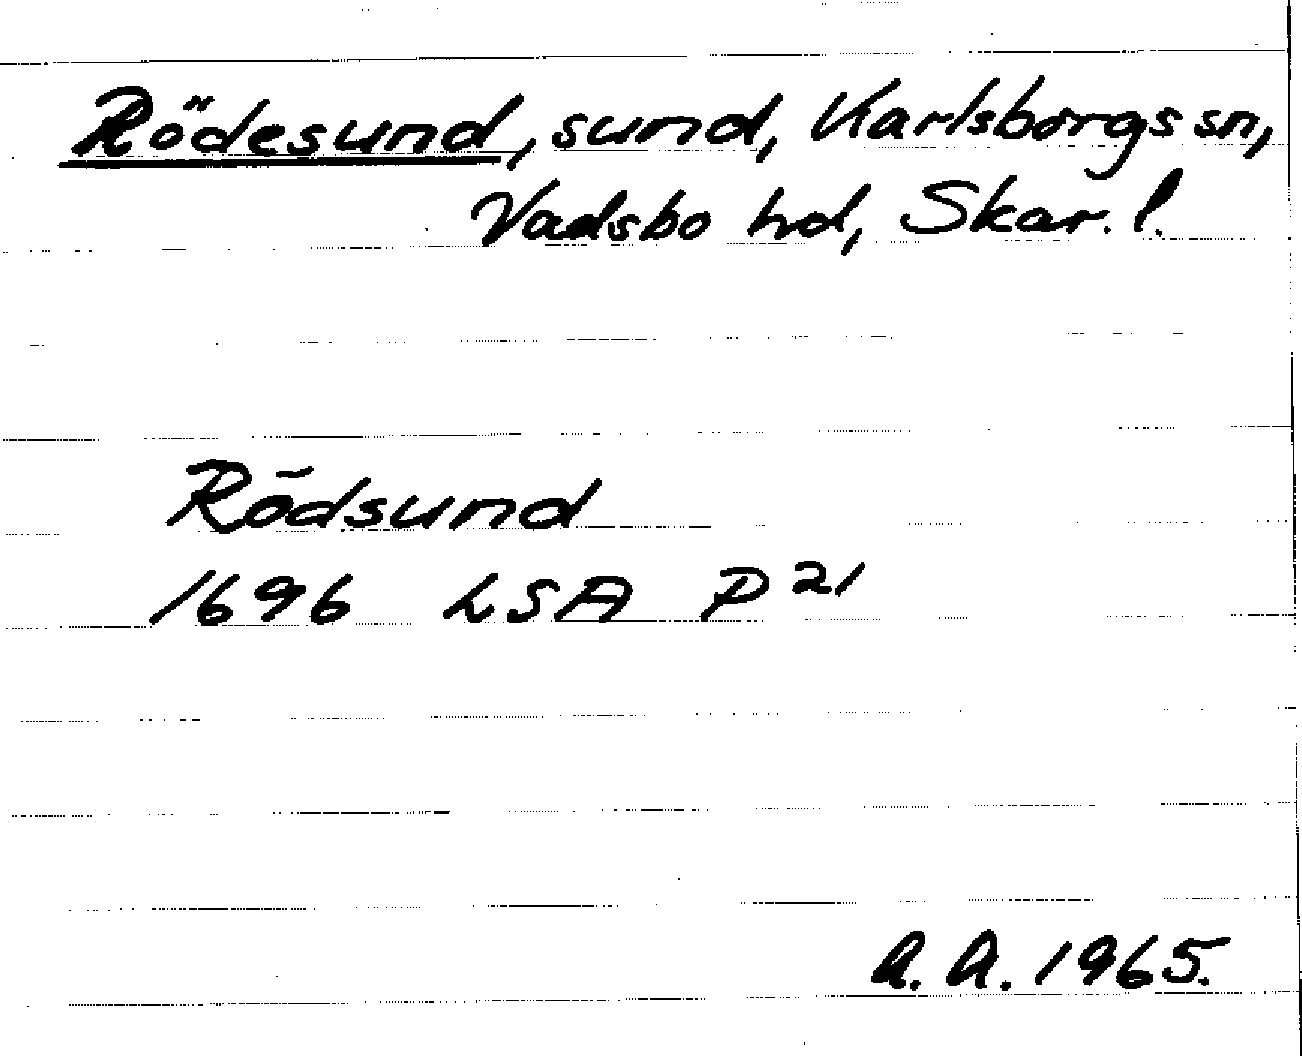 Rödesund, sund, Karlsborgs sn,
Vadsbo hd, Skar. l.
Rödsund
1696 LSA P 21
A. A. 1965.